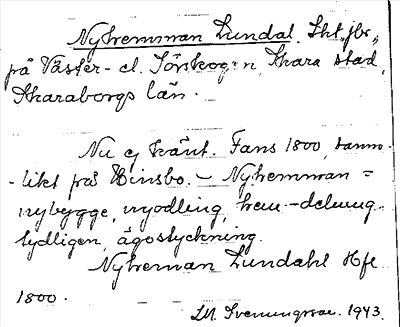 Nyhemman Lundal. Lht, jbr,,
på Väster- el. Sörskog:n, Skara stad,
Skaraborgs län.
Nu ej känt. Fans 1800, sann-
-likt på Hinsbo. – Nyhemman =
nybygge, nyodling, hem-delning
tydligen, ägostyckning.
Nyheman Lundahl Hfl
1800.
Svenungsson. 1943.